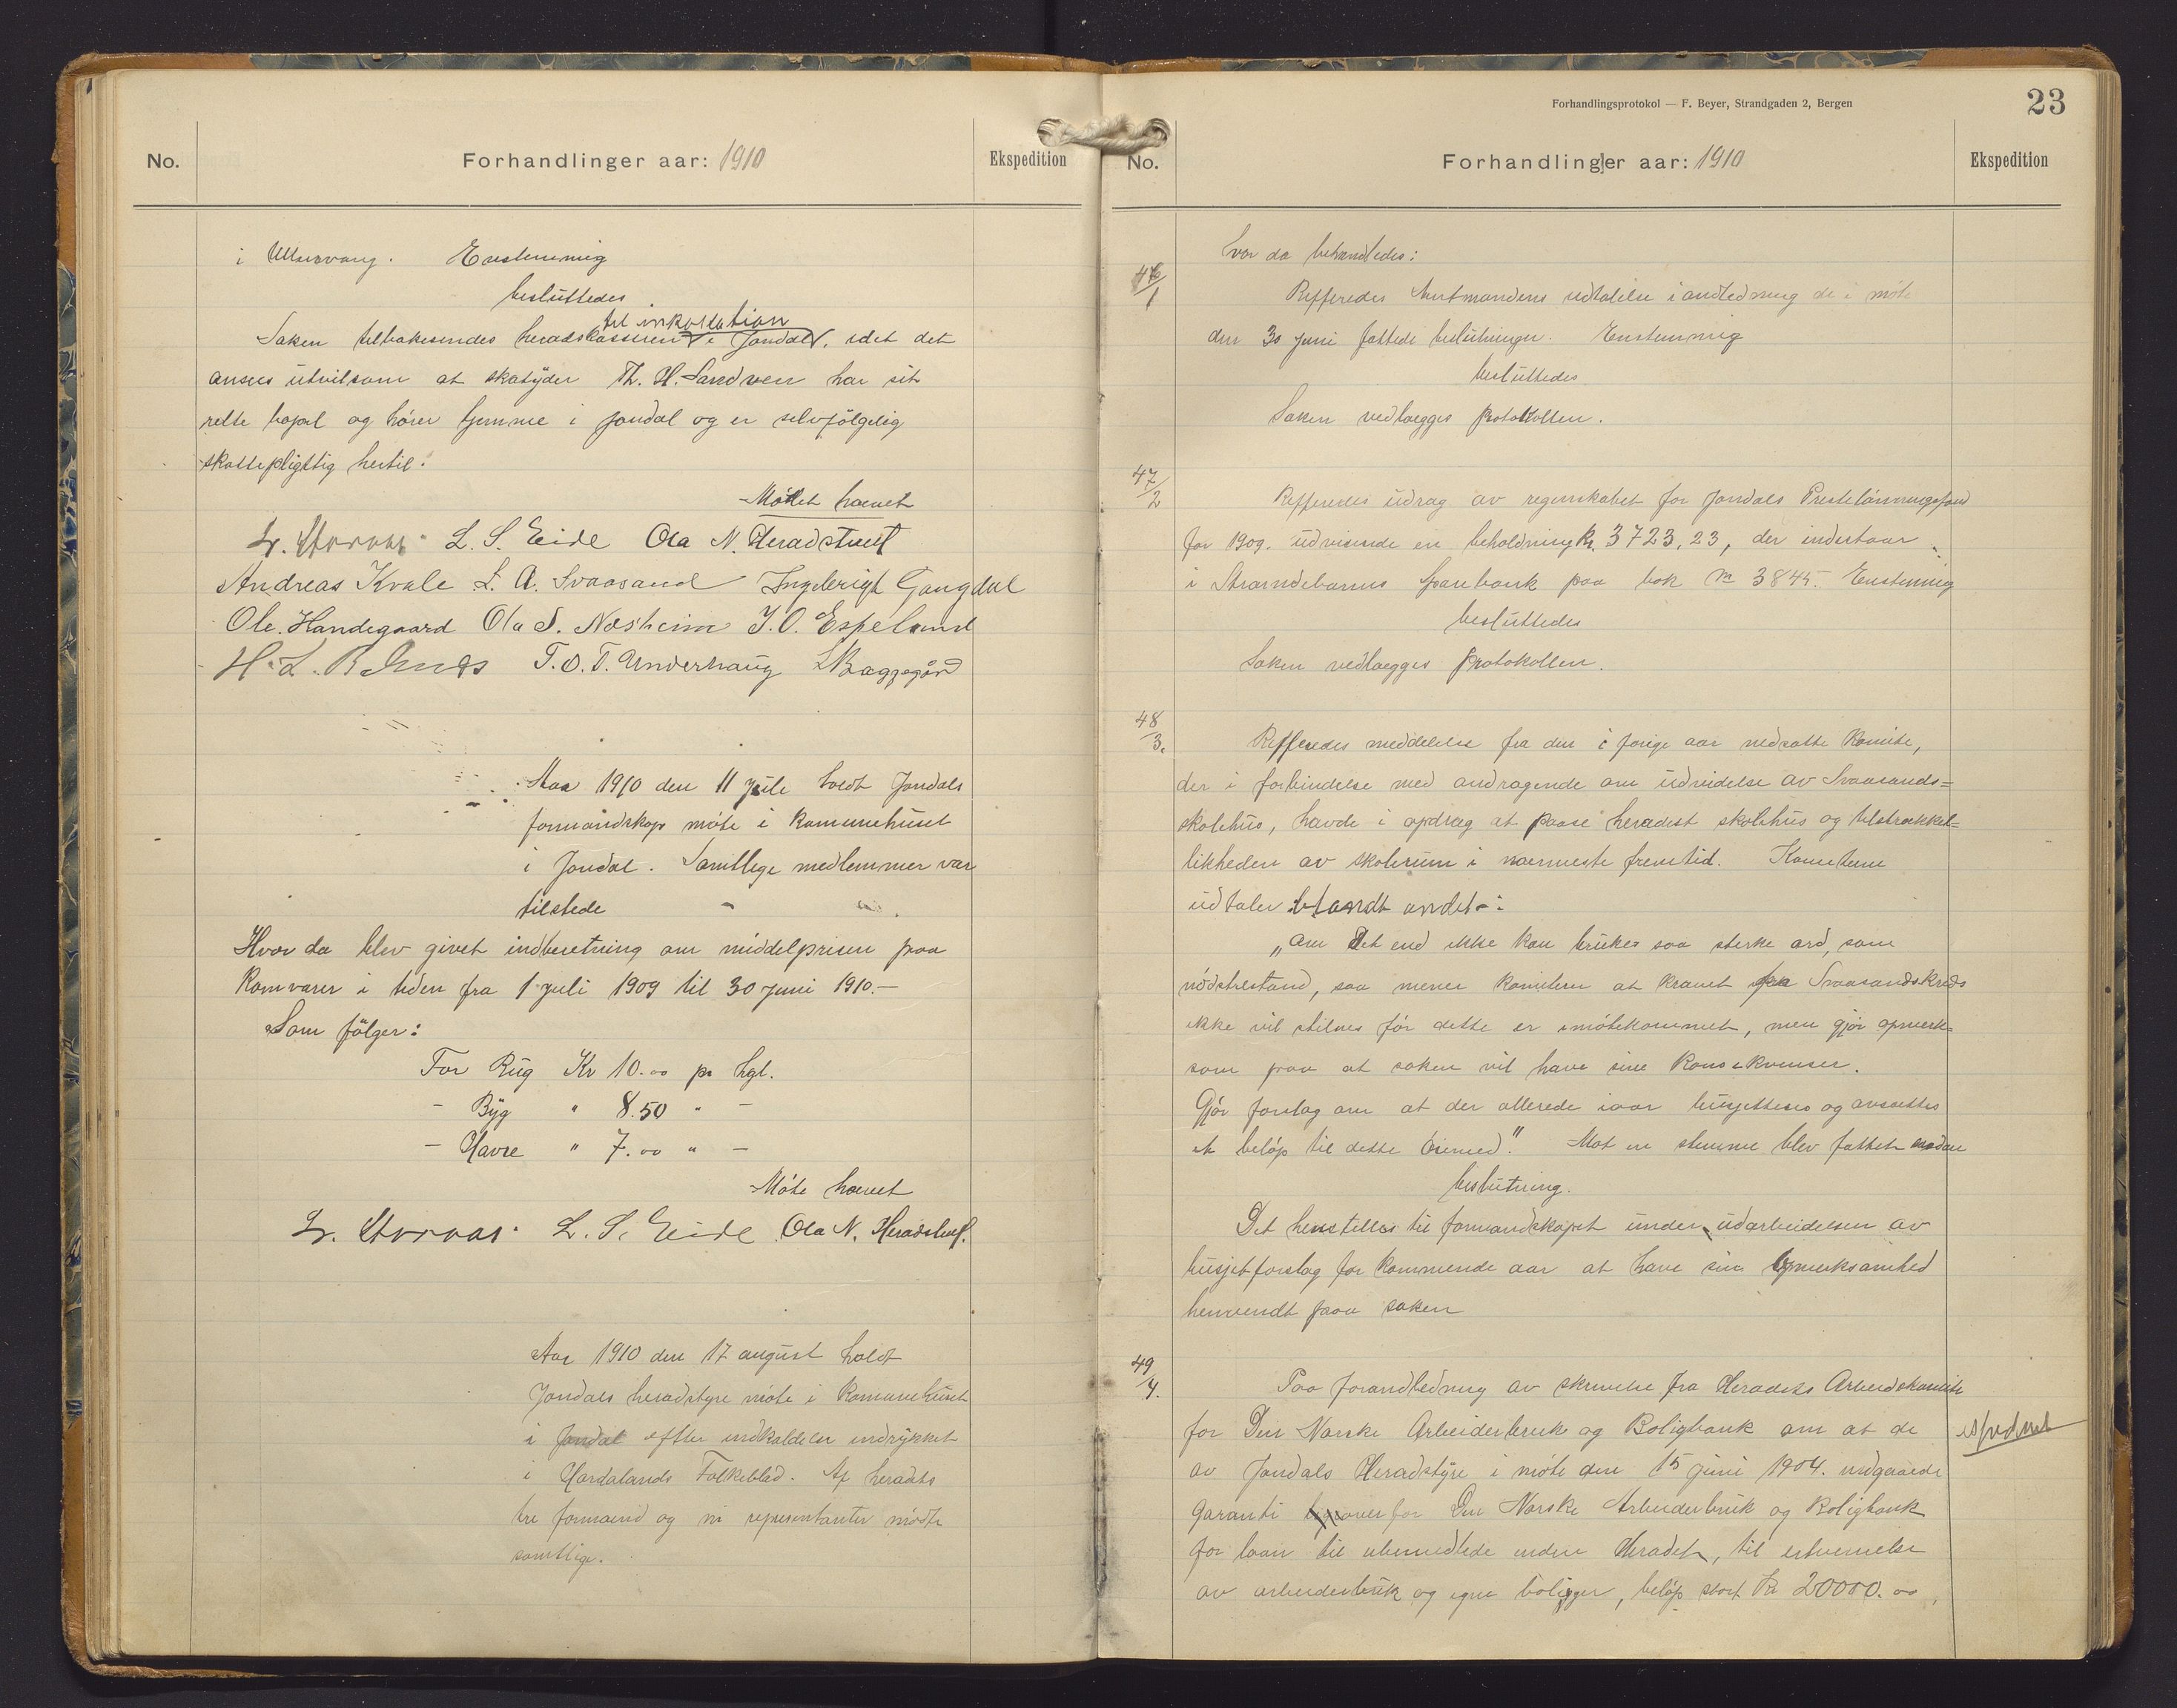 No.
Forhandlinger aar: 1910
Ekspedition
i Ullensvang. Enstemmig
besluttedes
til inkassation
Saken tilbakesendes heradskasseren i Jondal, idet det
ansees utvilsom at skatyder Th. H. Sandven har sit
rette bopæl og hører hjemme i Jondal og er selvfølgelig
skattepligttig hertil.
Møtet hævet
L. S. Eide Ola N. Heradstveit
Andreas Kvale L. A. Svaasand Ingebrigt Gangdal
Ole Handegaard Ola S. Næsheim J. O. Espeland
T. O. T. Underhaug
Aar 1910 den 11 juli holdt Jondals
formandskap møte i kommunehuset
i Jondal. Samtlige medlemmer var
tilstede
Hvor da blev givet indberetning om middelprisen paa
kornvarer i tiden fra 1 juli 1909 til 30 juni 1910.-
Som følger:
For Rug Kr 10.00 pr hgl.
- Byg " 8.50 " -
- Havre " 7.00 " -
Møte hævet
L. S. Eide Ola N. Heradstveit.
Aar 1910 den 17 august holdt
Jondals heradstyre møte i kommunehuset
i Jondal efter indkaldelse indrykket
i Hordalands Folkeblad. Af heradets
tre formænd og ni representanter mødte
samtlige.
Forhandlingsprotokol — F. Beyer, Strandgaden 2, Bergen
23
No.
Forhandlinger aar: 1910
Ekspedition
Hvor da behandledes:
46/1
Refferedes Amtmandens udtalelse i andledning de i møte
den 30 juni fattede beslutninger. Enstemmig
besluttedes
Saken vedlægges protokollen.
47/2
Refferedes udrag av regnskabet for Jondals Prestelønningsfond
for 1909. udvisende en beholdning kr. 3723,23, der indestaar
i Strandebarms Sparebank paa bok No 3845. Enstemmig
besluttedes
Saken vedlægges protokollen.
48/3.
Refferedes meddelelse fra den i forige aar nedsatte komite,
der i forbindelse med andragende om udvidelse av Svaasands=
skolehus, havde i opdrag at paase heradets skolehus og tilstrækkel=
likheden av skolerum i nærmeste fremtid. Komiteen
udtaler blandt andet -:
"om det end ikke kan brukes saa sterke ord, som
nødstrestand, saa mener komiteen at kravet fra Svaasandskreds
ikke vil stilnes før dette er imøtekommet, men gjør opmerk=
som paa at saken vil have sine konsekvenser.
Gjør forslag om at der allerede iaar busjetteres og avsættes
et beløp til dette øiemed." Mot en stemme blev fattet sadan
beslutning.
Det henstilles til formandskapet under udarbeidelsen av
busjetforslag for kommende aar at have sin opmerksomhed
henvendt paa saken
49/4.
Paa forandledning av skrivelse fra Heradets Arbeidskomite
for Den Norske Arbeiderbruk og Boligbank om at de
av Jondals Heradstyre i møte den 15 juni 1904. indgaaede
garanti overfor Den Norske Arbeiderbruk og Boligbank
for laan til ubemedlede inden Heradet, til erhvervelse
av arbeiderbruk og egne boligger, beløp stort Kr 20000.00,